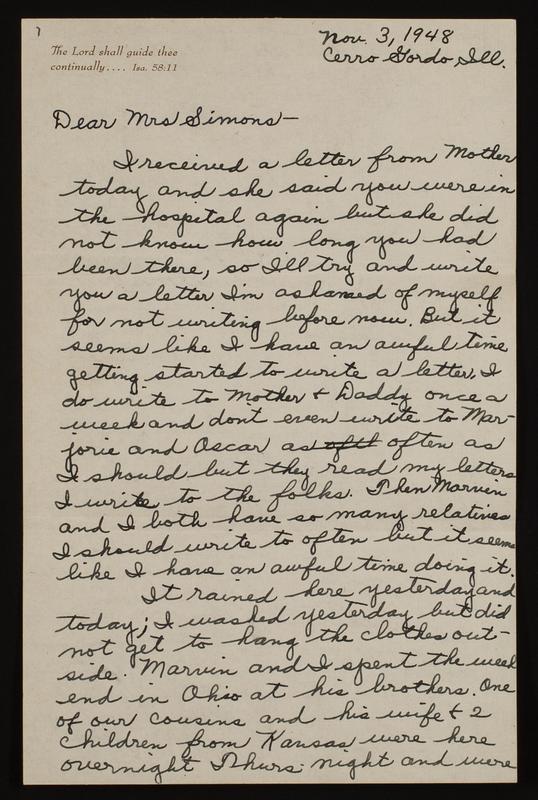 1
The Lord shall guide thee
continually.... Isa. 58:11
Nov. 3, 1948
Cerro Gordo, Ill.
Dear Mrs Simons—
I received a letter from Mother
today and she said you were in
the hospital again but she did
not know how long you had
been there, so I'll try and write
you a letter I'm ashamed of myself
for not writing before now. But it
seems like I have an awful time
getting started to write a letter. I
do write to Mother & Daddy once a
week and don't even write to Mar-
jorie and Oscar as often as
I should but they read my letters
I write to the folks. Then Marvin
and I both have so many relatives
I should write to often but it seems
like I have an awful time doing it.
It rained here yesterday and
today; I washed yesterday but did
not get to hang the clothes out-
side. Marvin and I spent the week
end in Ohio at his brothers. One
of our cousins and his wife & 2
children from Kansas were here
overnight Thurs. night and were